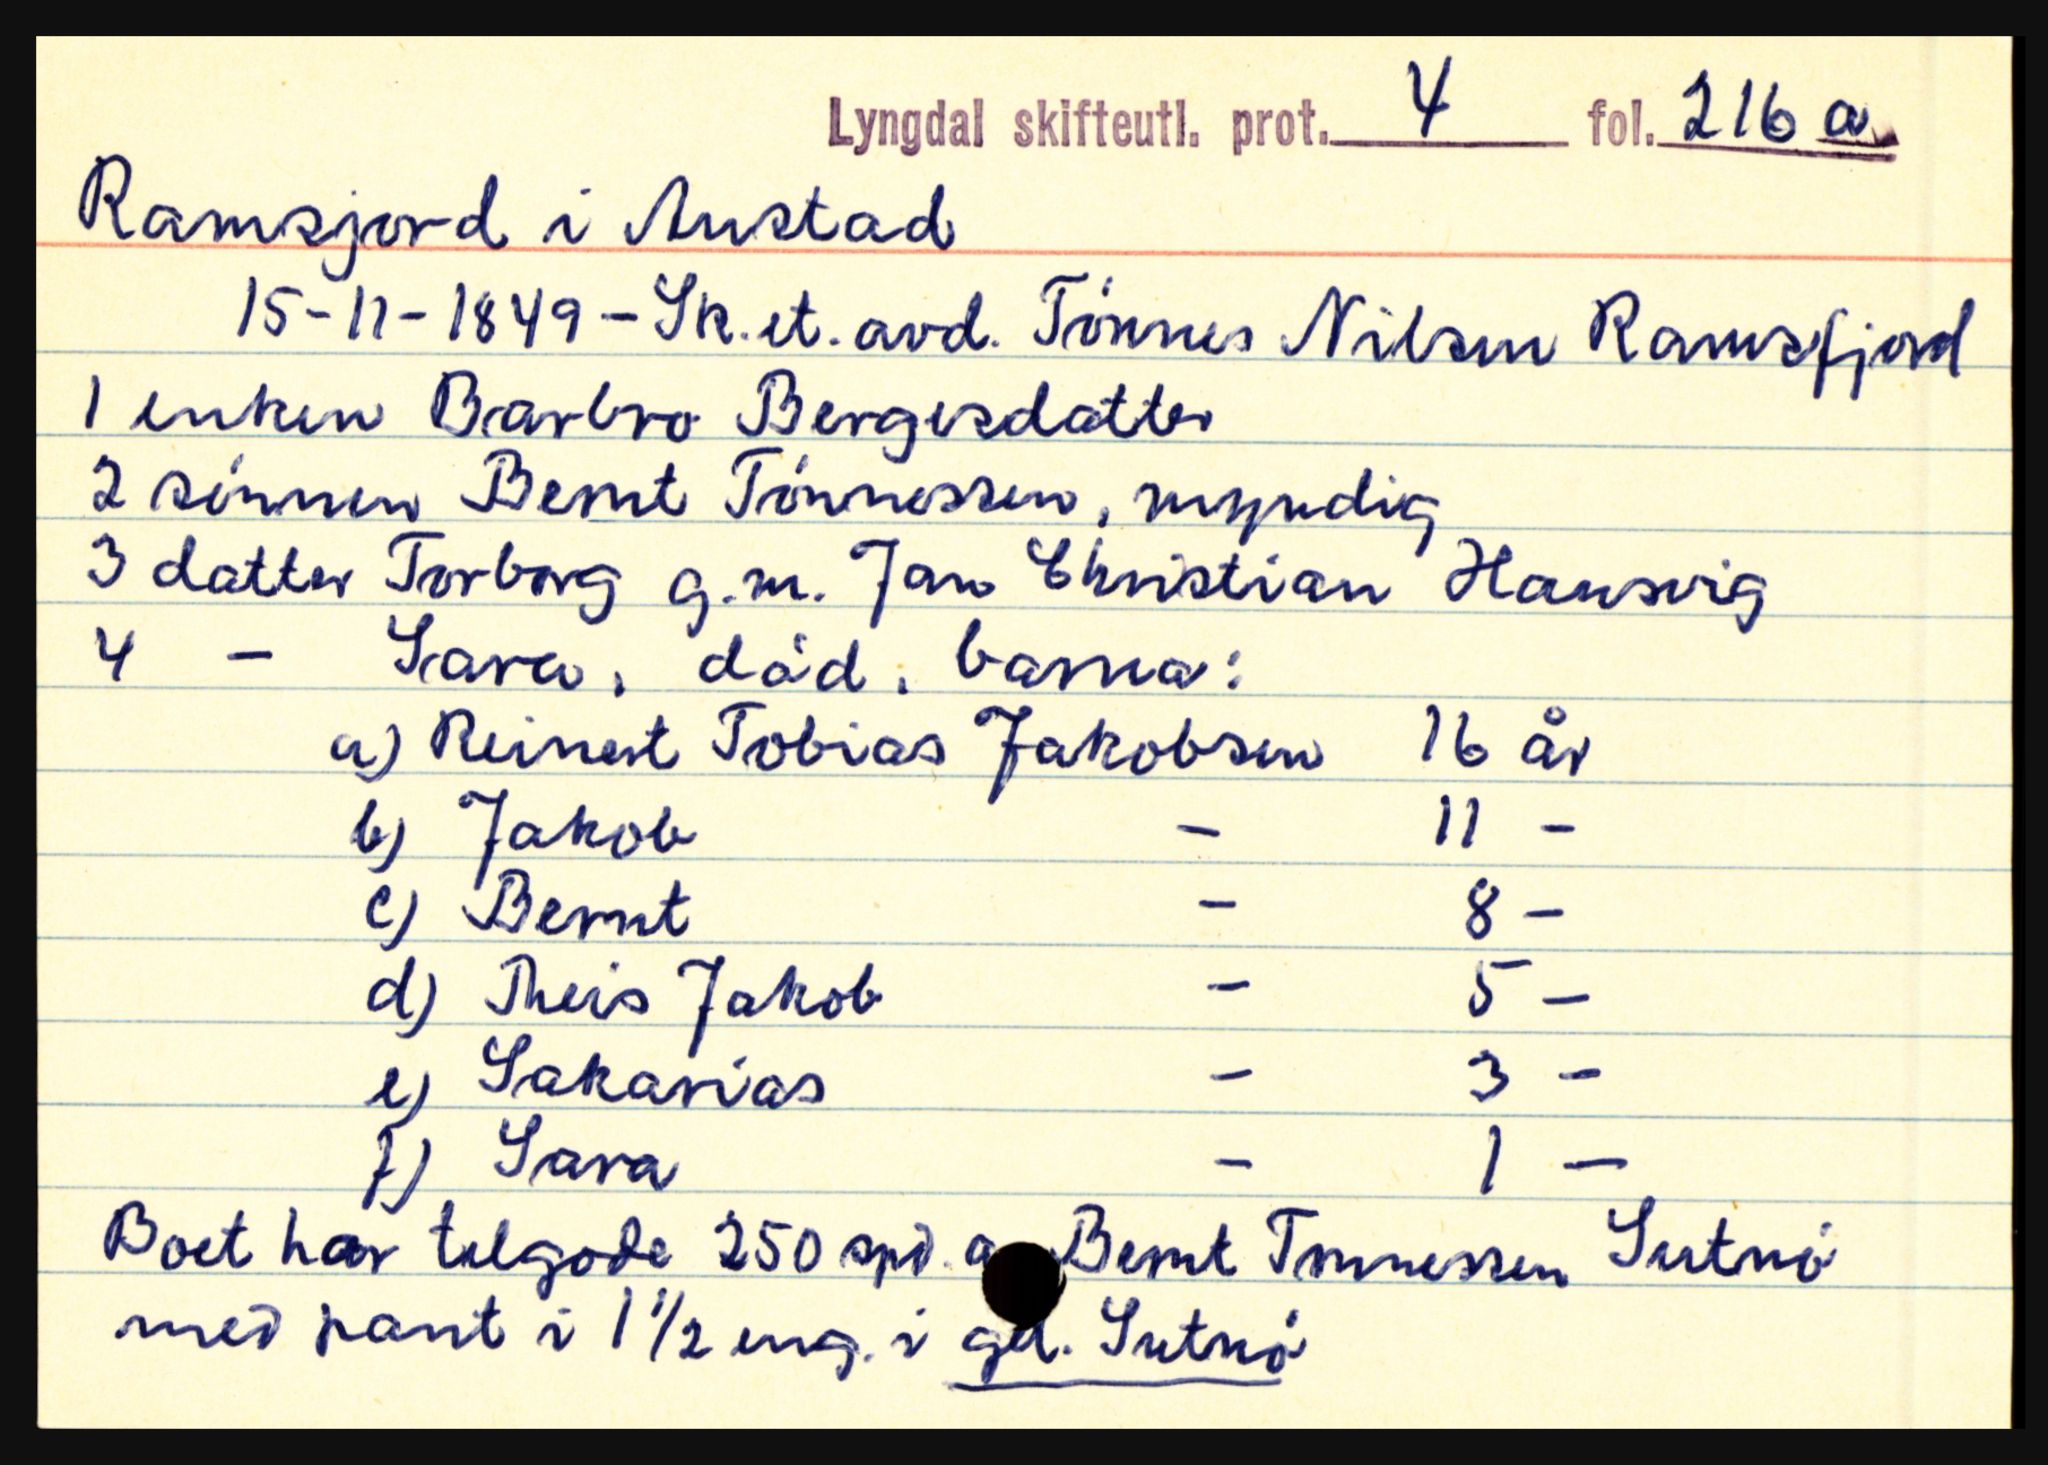 Lyngdal skifteutl. prot. 4 fol. 216 a
Ramsjord i Austad
15-11-1849 - Sk.et.avd. Tónnes Nilsen Ramsfjord
1 enken Barbro Bergesdatter
2 sónnen Bernt Tónnessen, myndig
3 datter Torborg g.m. Jan Christian Hausvig
4 - Sara, död, barna:
a) Reinert Tobias Jakobsen 16 år
b) Jakob - 11 -
c) Bernt - 8 -
d) Theis Jakob - 5 -
e) Sakarias - 3 -
f) Sara - 1 -
Boet har tilgode 250 spd. a Bernt Tónnessen
med pant i 1 1/2 eng. i gd.